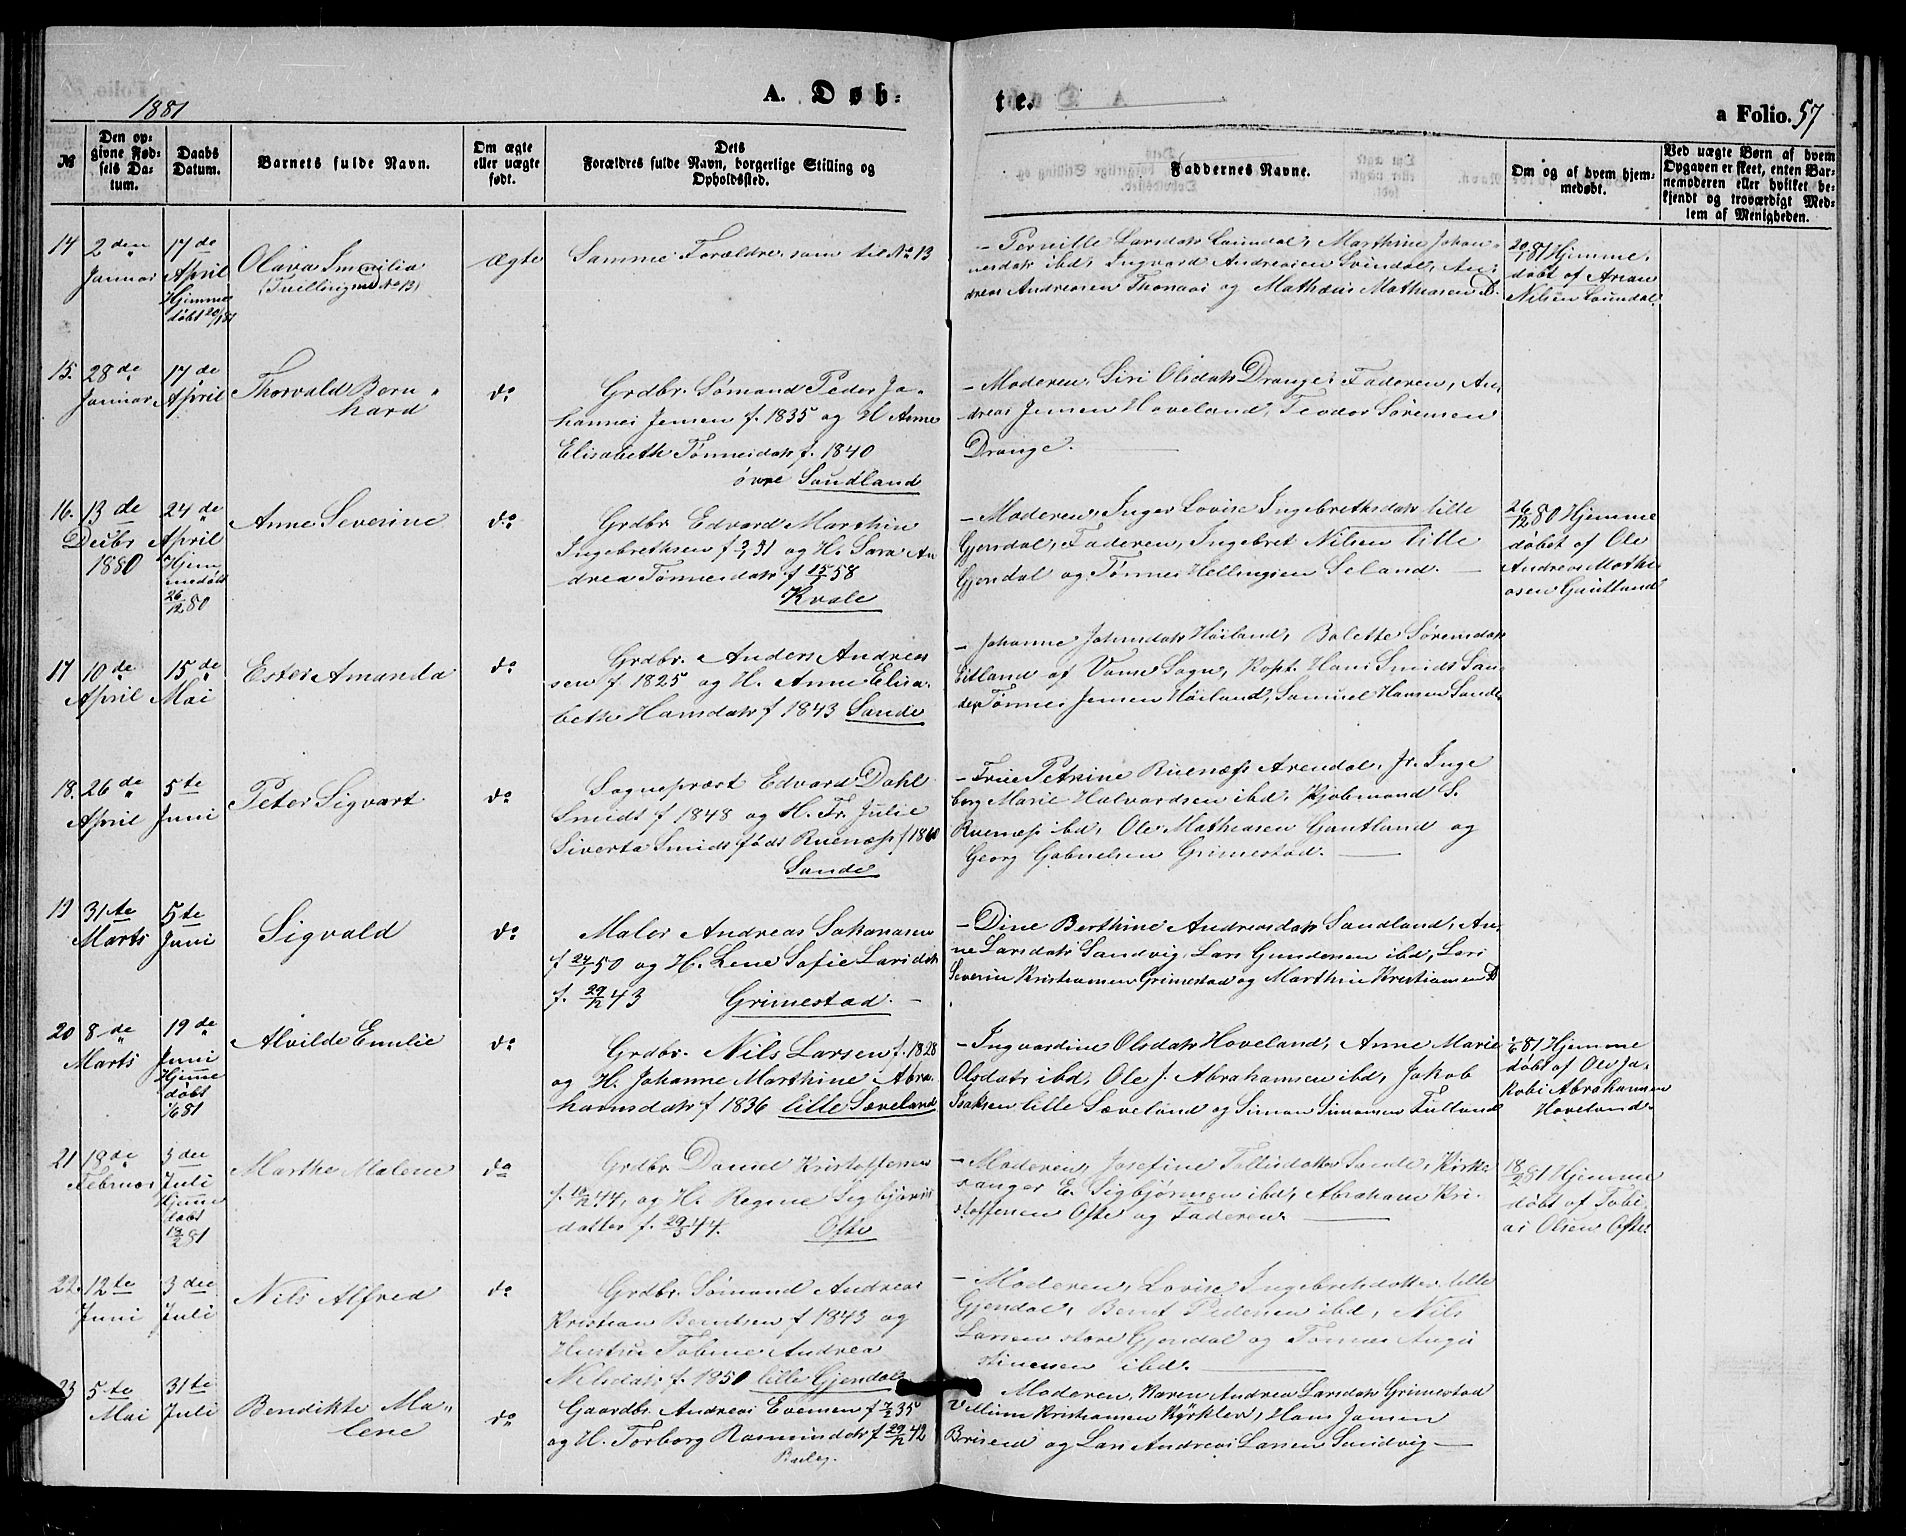 1881
A. Døb-
te.
a Folio. 57
№
Den op-
givne Fød-
sels Da-
tum.
Daabs
Datum.
Barnets fulde Navn.
Om ægte
eller uægte
født.
Dets
Forældres fulde Navn, borgerlige Stilling og
Opholdssted.
Faddernes Navne.
Om og af hvem hjem-
medøbt.
Ved uægte Børn af hvem
Opgaven er skeet, enten Bar-
nemoderen eller hvilket be-
kjendt og troværdigt Med-
lem af Menigheden.
14
2den
Januar
17de
April
Hjemme
døbt 20/1 81
Olava Smenilia
(Tvilling med No 13)
ægte
Samme Forældre som til No 13
- Pernille Larsdatr Laundal, Marthine Johan-
nesdatr ibd, Ingvard Andreasen Svindal, An-
dreas Andreasen Thonaas og Mathæus Mathiasen D.
20/1 81 Hjemme-
døbt af Arian
Nilsen Laundal.
15.
28de
Januar
17de
April
Thorvald Bern-
hard
do
Grdbr. Sømand Peder Jo-
hannes Jensen f. 1835 og H Anne
Elisabeth Tønnesdatr f. 1840
øvre Sandland
- Moderen, Siri Olsdatr Drange, Faderen, An-
dreas Jensen Hoveland, Teodor Sørensen
Drange.
16.
13de
Decbr
1880
24de
April
Hjem
medøbt
26/12 80
Anne Severine
do
Grdbr Edvard Marthin
Ingebrethsen f 31 og H. Sara An
drea Tønnesdatr f 15/5 58
Kvale
- Moderen, Inger Lovise Ingebrethsdatr lille
Gjendal, Faderen, Ingebret Nilsen lille
Gjendal og Tønnes Hellingsen Seland.
26/12 80 Hjemme
døbet af Ole
Andreas Mathi
asen Gautland
17
10de
April
15de
Mai
Ester Amanda
do
Grdbr. Anders Andreas
sen f 1825 og H. Anne Elisa-
beth Hansdatr f 1843 Sande
- Johanne Johnsdatr Høiland, Bolette Sørensdatr
Eitland af Vanse Sogn, Kapt. Hans Smids San
de, Tønnes Jensen Høiland, Samuel Hansen Sande
18.
26de
April
5te
Juni
Peter Sigvart
do
Sogneprært Edvard Dahl
Smidt f 1848 og H. Fr. Julie
Siverta Smidt født Ruenæss f 1860
Sande
- Frue Petrine Ruenæss Arendal, Jr. Inge
borg Marie Halvardsen ibd, Kjøbmand S.
Ruenæss ibd, Ole Mathiasen Gautland og
Georg Gabrielsen Grimestad.
19
31te
Marts
5te
Juni
Sigvald
do
Maler Andreas Johansen
f 24/1 50 og H. Lene Sofie Larsdatr
f. 29/12 43 Grimestad.
- Dine Berthine Andreasdatr Sandland, An-
ne Larsdatr Sandvig, Lars Gundersen ibd, Lars
Severin Kristiansen Grimestad og Marthin Kristiansen D
20
8de
Marts
19de
Juni
Hjemme
døbt
1/6 81
Alvilde Emilie
do
Grdbr. Nils Larsen f. 1828
og H. Johanne Marthine Abra-
hamsdatr f 1836 lille Sæveland
- Ingvardine Olsdatr Hoveland, Anne Marie
Olsdatr ibd, Ole J. Abrahamsen ibd, Jakob
Isaksen lille Sæveland og Simon Simonsen Fulland
1/6 81 Hjemme
døbt af Ole Ja-
kobi Abrahamsen
Hoveland.
21
18de
Februar
3die
Juli
Hjemme
døbt
18/2 81
Marthe Malene
do
Grdbr Daniel Kristoffersen
f. 18/12 44, og H. Regine Sigbjørns
datter f. 29/3 44. Ofte
- Moderen, Josefine Tollisdatter Sande, Kirk-
sanger E. Sigbjørnsen ibd, Abraham Kri-
stoffersen Ofte og Faderen.
18/2 81 Hjemme
døbt af Tobi-
as Olsen Ofte
22.
12te
Juni
3die
Juli
Nils Alfred
do
Grdbr. Sømand Andreas
Kristian Berntsen f 1843 og
Hustru Tobine Andrea
Nilsdatr f. 1850 lille Gjendal
- Moderen, Lovise Ingebretsdatter lille
Gjendal, Bernt Pedersen ibd, Nils
Larsen store Gjendal og Tønnes Augu
stinussen ibd.
23
5te
Mai
31te
Juli
Bendikte Ma-
lene
do
Gaardbr Andreas Evensen f 7/2 35
og H. Torborg Rasmusdatr f 29/12 42
Moderen, Karen Andrea Larsdatr Grimestad
Villum Kristiansen Kirkeland, Hans Jansen
Briseid og Lars Andreas Larsen Sandvig